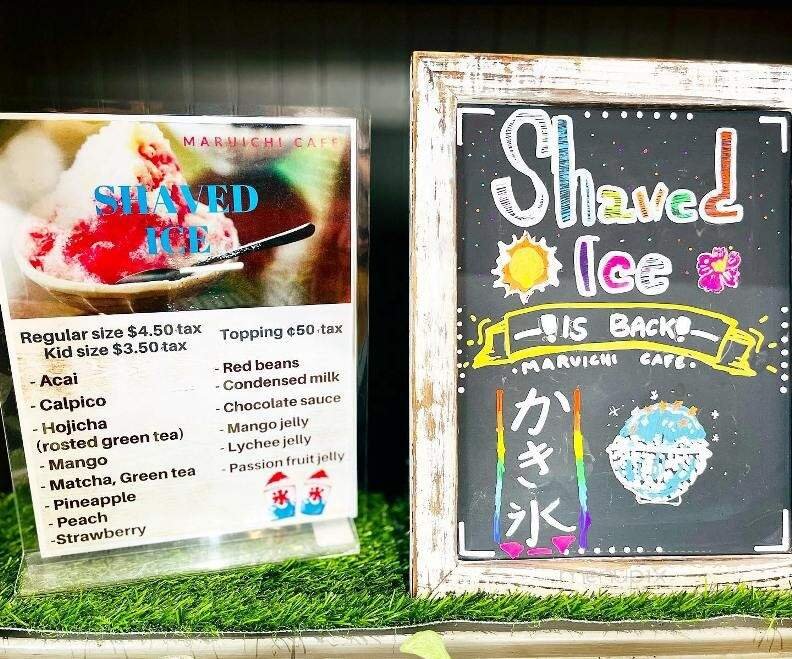 MARUICHI CAFE
SHAVED
ICE
Regular size $4.50+tax
Kid size $3.50+tax
- Acai
- Calpico
- Hojicha
(rosted green tea)
- Mango
- Matcha, Green tea
- Pineapple
- Peach
-Strawberry
Topping ¢50+tax
- Red beans
- Condensed milk
- Chocolate sauce
- Mango jelly
- Lychee jelly
- Passion fruit jelly
氷 氷
Shaved
Ice
IS BACK!
・MARUICHI CAFE・
かき氷